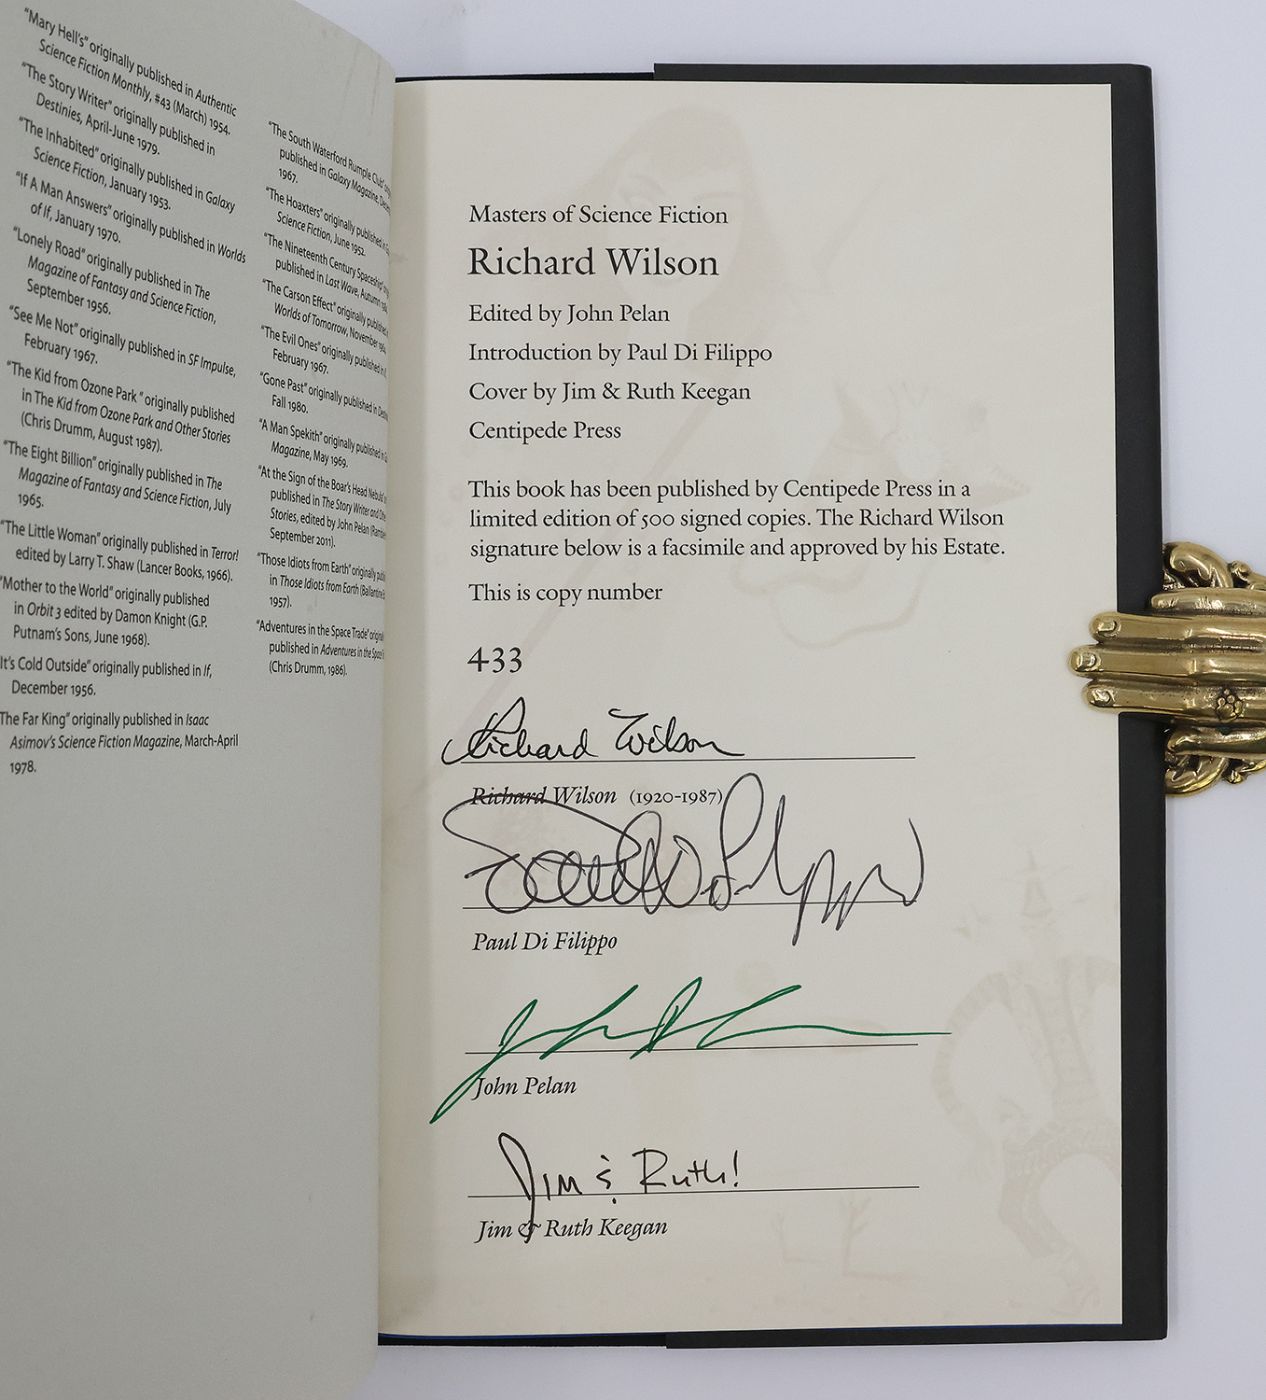 "Mary Hell's" originally published in Authentic
Science Fiction Monthly, #43 (March) 1954.
"The Story Writer" originally published in
Destinies, April-June 1979.
"The Inhabited" originally published in Galaxy
Science Fiction, January 1953.
"If A Man Answers" originally published in Worlds
of If, January 1970.
"Lonely Road" originally published in The
Magazine of Fantasy and Science Fiction,
September 1956.
"See Me Not" originally published in SF Impulse,
February 1967.
"The Kid from Ozone Park " originally published
in The Kid from Ozone Park and Other Stories
(Chris Drumm, August 1987).
"The Eight Billion" originally published in The
Magazine of Fantasy and Science Fiction, July
1965.
"The Little Woman" originally published in Terror!
edited by Larry T. Shaw (Lancer Books, 1966).
"Mother to the World" originally published
in Orbit 3 edited by Damon Knight (G.P.
Putnam's Sons, June 1968).
It's Cold Outside" originally published in If,
December 1956.
The Far King" originally published in Isaac
Asimov's Science Fiction Magazine, March-April
1978.
"The South Waterford Rumple Club"
published in Galaxy Magazine,
1967.
"The Hoaxters" originally published in
Science Fiction, June 1952.
"The Nineteenth Century Spaceship"
published in Last Wave, Autumn
"The Carson Effect" originally
Worlds of Tomorrow, November
"The Evil Ones" originally published in
February 1967.
"Gone Past" originally published in
Fall 1980.
"A Man Spekith" originally published in
Magazine, May 1969.
"At the Sign of the Boar's Head Nebula"
published in The Story Writer and
Stories, edited by John Pelan
September 2011).
"Those Idiots from Earth" originally
in Those Idiots from Earth (Ballantine
1957).
"Adventures in the Space Trade"
published in Adventures in the Space
(Chris Drumm, 1986).
Masters of Science Fiction
Richard Wilson
Edited by John Pelan
Introduction by Paul Di Filippo
Cover by Jim & Ruth Keegan
Centipede Press
This book has been published by Centipede Press in a
limited edition of 500 signed copies. The Richard Wilson
signature below is a facsimile and approved by his Estate.
This is copy number
433
Richard Wilson
Richard Wilson (1920-1987)
Paul Di Filippo
Paul Di Filippo
John Pelan
Jim & Ruth!
Jim & Ruth Keegan